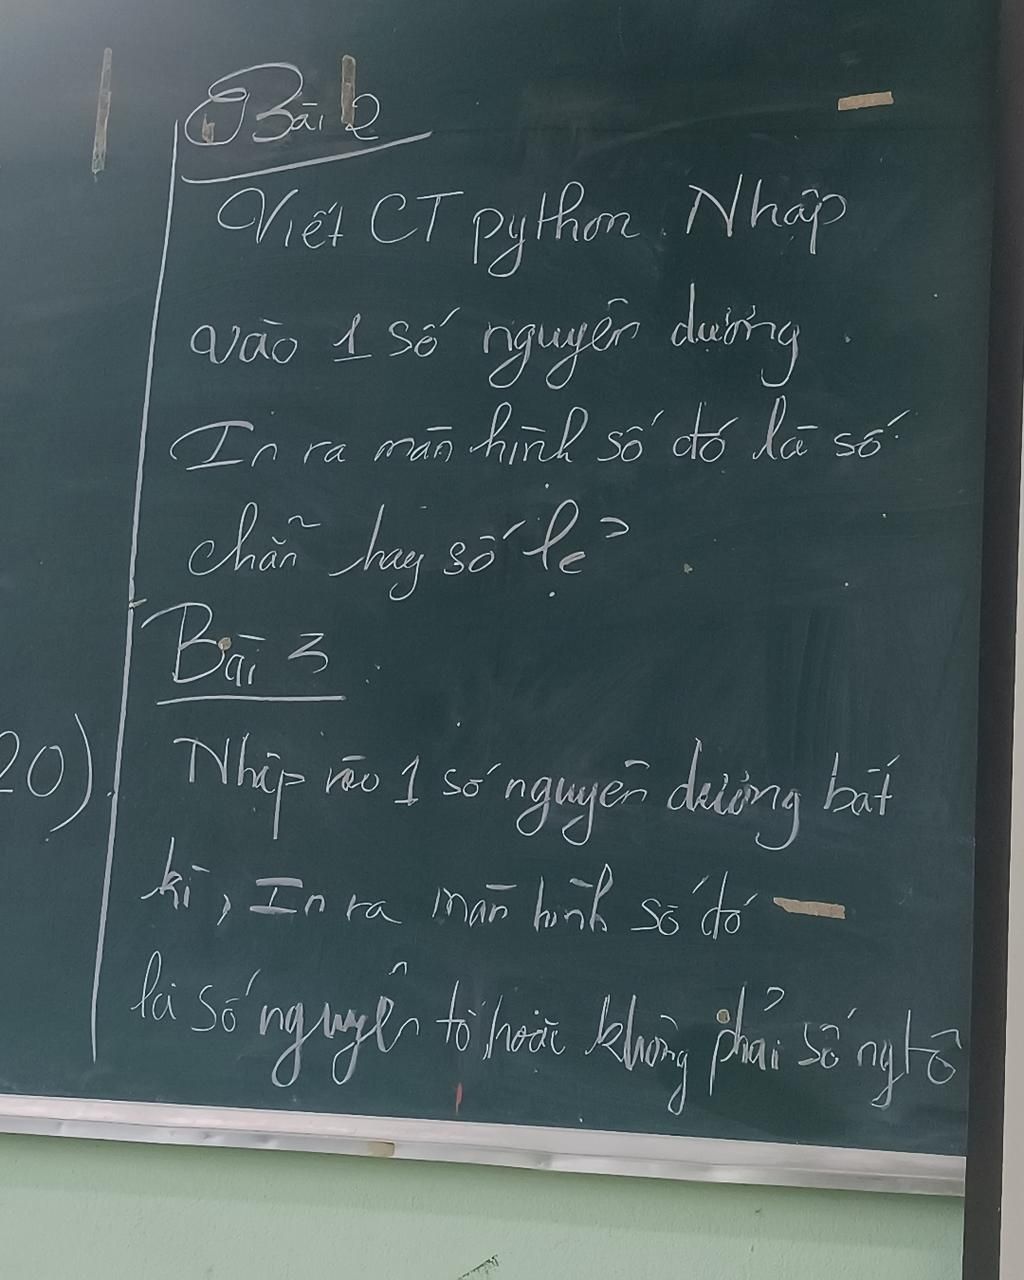 Bài 2
Viết CT python. Nhập
vào 1 số nguyên dương.
In ra màn hình số đó là số
chẵn hay số lẻ?
Bài 3
20)
Nhập vào 1 số nguyên dương bất
kì, In ra màn hình số đó
là số nguyên tố hoặc không phải số ngtố